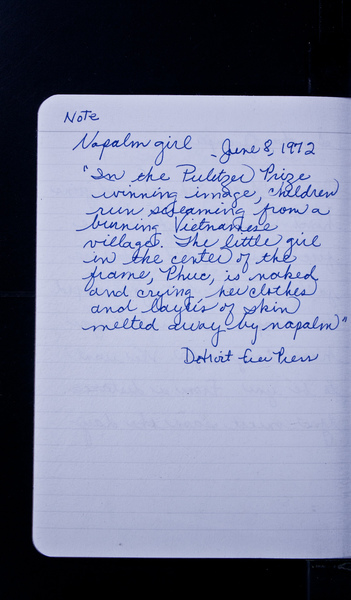 Note
Napalm girl - June 8, 1972
"In the Pulitzer Prize
winning image, children
run screaming from a
burning Vietnamese
village. The little girl
in the center of the
frame, Phuc, is naked
and crying, her clothes
and layers of skin
melted away by napalm"
Detroit Free Press